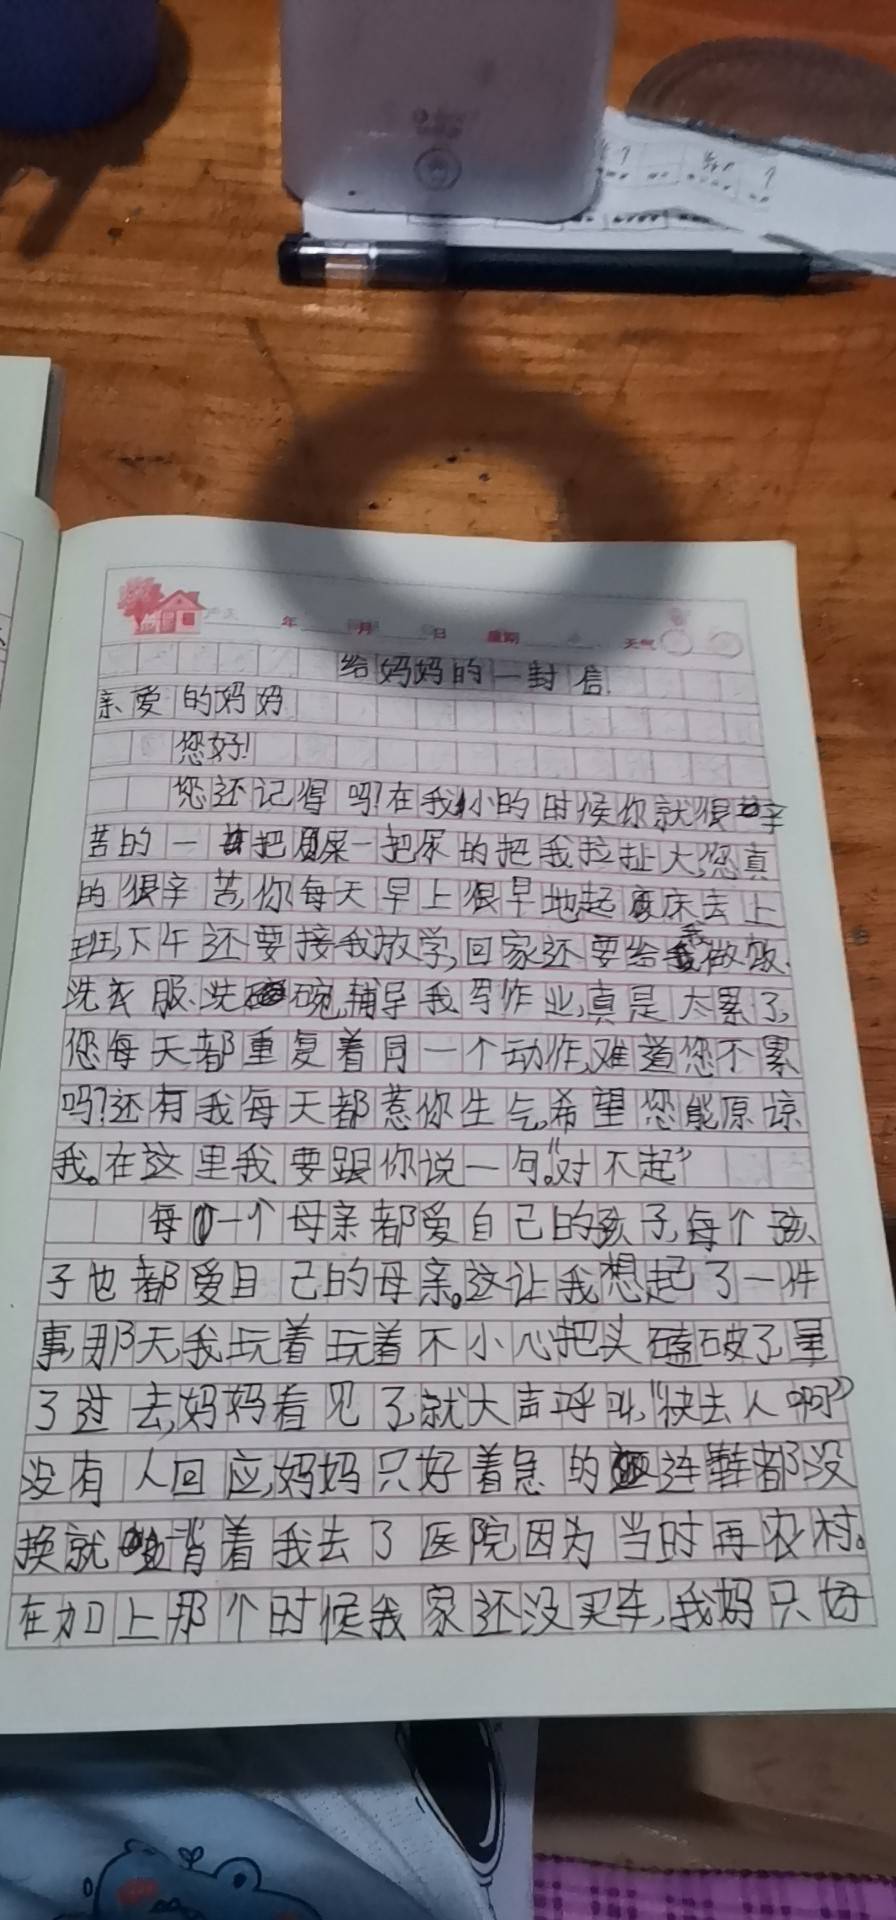 年 月 日 星期 天气
给妈妈的一封信
亲爱的妈妈
您好!
您还记得吗?在我小的时候你就很辛
苦的一把屎一把尿的把我拉扯大,您真
的很辛苦,你每天早上很早地起床去上
班,下午还要接我放学,回家还要给我做饭、
洗衣服、洗碗,辅导我写作业,真是太累了,
您每天都重复着同一个动作,难道您不累
吗?还有我每天都惹你生气,希望您能原谅
我。在这里我要跟你说一句。“对不起”
每一个母亲都爱自己的孩子,每个孩
子也都爱自己的母亲。这让我想起了一件
事,那天,我玩着玩着不小心把头磕破了,晕
了过去,妈妈看见了,就大声呼叫,“快去人啊”
没有人回应,妈妈只好着急的连鞋都没
换就背着我去了医院因为当时再农村。
在加上那个时候我家还没买车,我妈只好